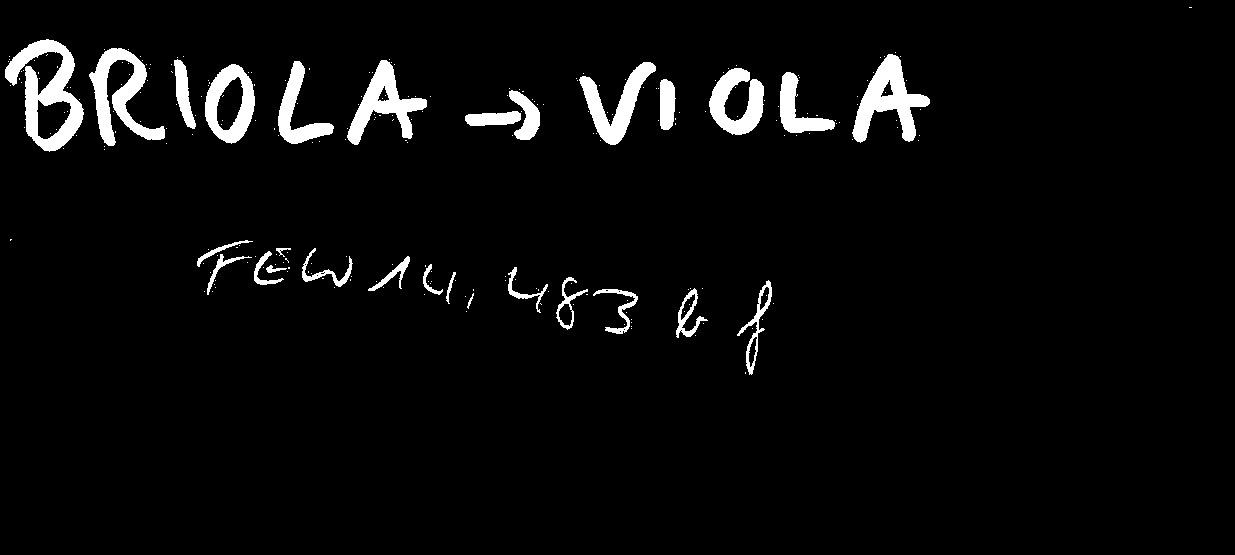 BRIOLA → VIOLA
FEW 14, 483 b f